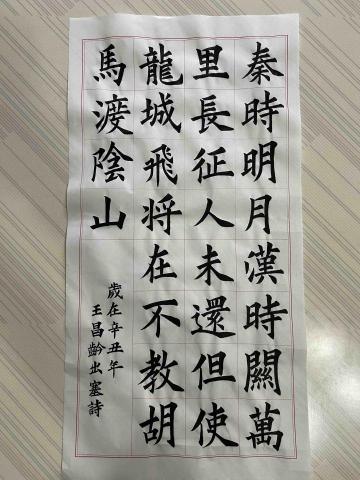 秦時明月漢時關萬
里長征人未還但使
龍城飛将在不教胡
馬渡陰山
歲在辛丑年
王昌齡出塞詩